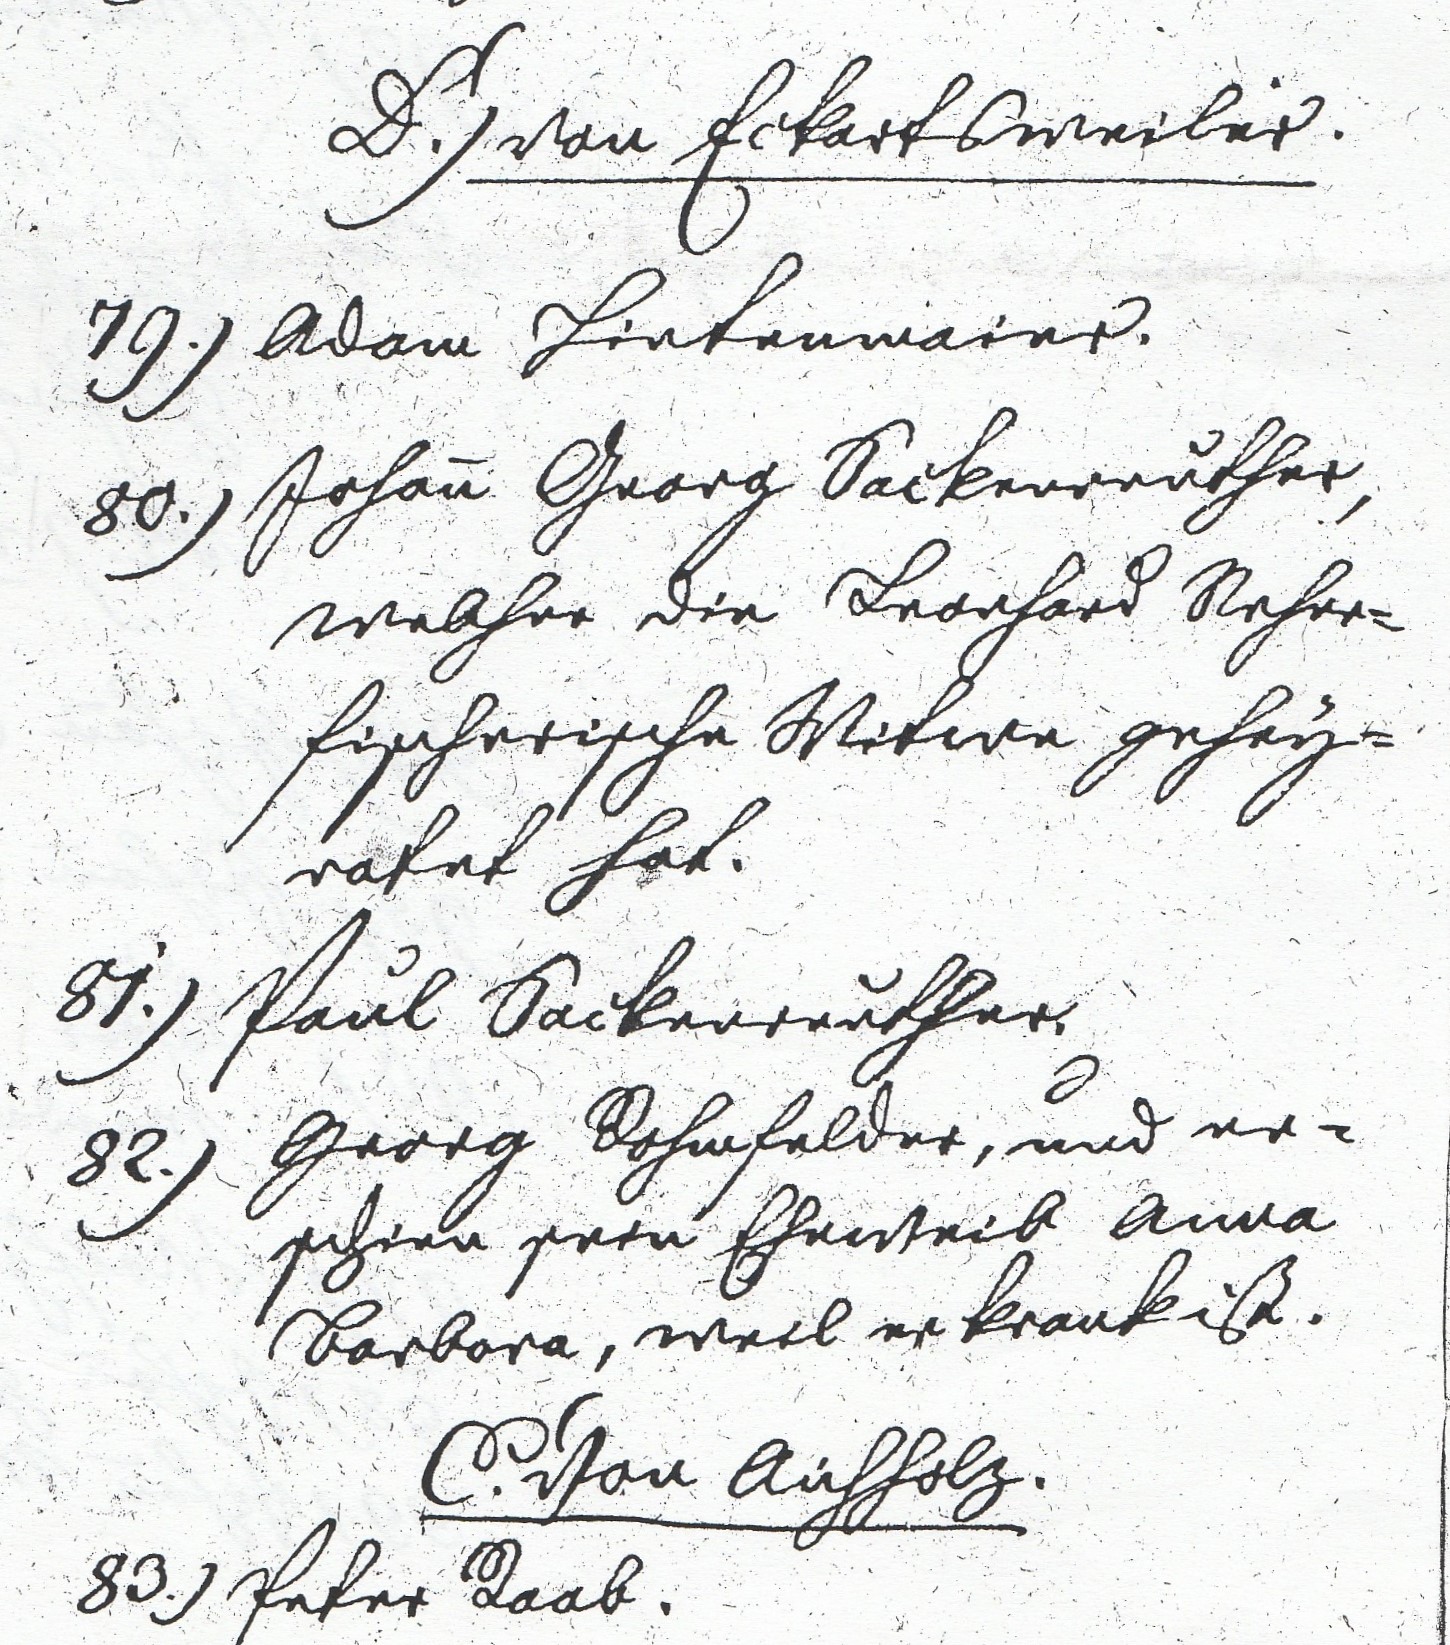 D.) von Eckartsweiler.
79.) Adam Linkenmaier.
80.) Johan̄ Georg Sackenreuther,
welcher die Leonhard Reher=
fischerische Witwe gehey=
ratet hat.
81.) Paul Sackenreuther.
82.) Georg Rohmfelder, und er=
schien sein Eheweib Anna
Barbara, weil er krank ist.
C. Von Aichholz.
83.) Peter Raab.